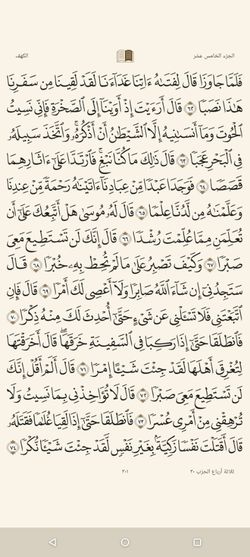 الجزء الخامس عشر
الكهف
فَلَمَّا جَاوَزَا قَالَ لِفَتَىٰهُ ءَاتِنَا غَدَآءَنَا لَقَدْ لَقِينَا مِن سَفَرِنَا
هَٰذَا نَصَبًا ٦٢ قَالَ أَرَءَيْتَ إِذْ أَوَيْنَآ إِلَى ٱلصَّخْرَةِ فَإِنِّى نَسِيتُ
ٱلْحُوتَ وَمَآ أَنسَىٰنِيهُ إِلَّا ٱلشَّيْطَٰنُ أَنْ أَذْكُرَهُۥ وَٱتَّخَذَ سَبِيلَهُۥ
فِى ٱلْبَحْرِ عَجَبًا ٦٣ قَالَ ذَٰلِكَ مَا كُنَّا نَبْغِ فَٱرْتَدَّا عَلَىٰٓ ءَاثَارِهِمَا
قَصَصًا ٦٤ فَوَجَدَا عَبْدًا مِّنْ عِبَادِنَآ ءَاتَيْنَٰهُ رَحْمَةً مِّنْ عِندِنَا
وَعَلَّمْنَٰهُ مِن لَّدُنَّا عِلْمًا ٦٥ قَالَ لَهُۥ مُوسَىٰ هَلْ أَتَّبِعُكَ عَلَىٰٓ أَن
تُعَلِّمَنِ مِمَّا عُلِّمْتَ رُشْدًا ٦٦ قَالَ إِنَّكَ لَن تَسْتَطِيعَ مَعِىَ
صَبْرًا ٦٧ وَكَيْفَ تَصْبِرُ عَلَىٰ مَا لَمْ تُحِطْ بِهِۦ خُبْرًا ٦٨ قَالَ
سَتَجِدُنِىٓ إِن شَآءَ ٱللَّهُ صَابِرًا وَلَآ أَعْصِى لَكَ أَمْرًا ٦٩ قَالَ فَإِنِ
ٱتَّبَعْتَنِى فَلَا تَسْـَٔلْنِى عَن شَىْءٍ حَتَّىٰٓ أُحْدِثَ لَكَ مِنْهُ ذِكْرًا ٧٠
فَٱنطَلَقَا حَتَّىٰٓ إِذَا رَكِبَا فِى ٱلسَّفِينَةِ خَرَقَهَا قَالَ أَخَرَقْتَهَا
لِتُغْرِقَ أَهْلَهَا لَقَدْ جِئْتَ شَيْـًٔا إِمْرًا ٧١ قَالَ أَلَمْ أَقُلْ إِنَّكَ
لَن تَسْتَطِيعَ مَعِىَ صَبْرًا ٧٢ قَالَ لَا تُؤَاخِذْنِى بِمَا نَسِيتُ وَلَا
تُرْهِقْنِى مِنْ أَمْرِى عُسْرًا ٧٣ فَٱنطَلَقَا حَتَّىٰٓ إِذَا لَقِيَا غُلَٰمًا فَقَتَلَهُۥ
قَالَ أَقَتَلْتَ نَفْسًا زَكِيَّةًۢ بِغَيْرِ نَفْسٍ لَّقَدْ جِئْتَ شَيْـًٔا نُّكْرًا ٧٤
ثلاثة أرباع الحزب ٣٠
٣٠١